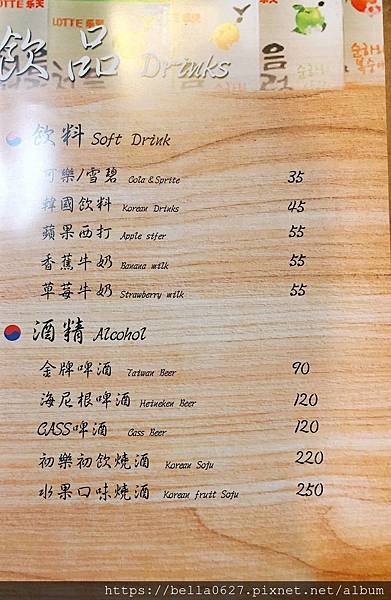 LOTTE 乐天
LOTTE 乐天
飲品 Drinks
飲料 Soft Drink
可樂/雪碧 Cola & Sprite 35
韓國飲料 Korean Drinks 45
蘋果西打 Apple sifer 55
香蕉牛奶 Banana milk 55
草莓牛奶 Strawberry milk 55
酒精 Alcohol
金牌啤酒 Taiwan Beer 90
海尼根啤酒 Heineken Beer 120
CASS啤酒 Cass Beer 120
初樂初飲燒酒 Korean Soju 220
水果口味燒酒 Korean fruit Soju 250
https://bella0627.pixnet.net/album